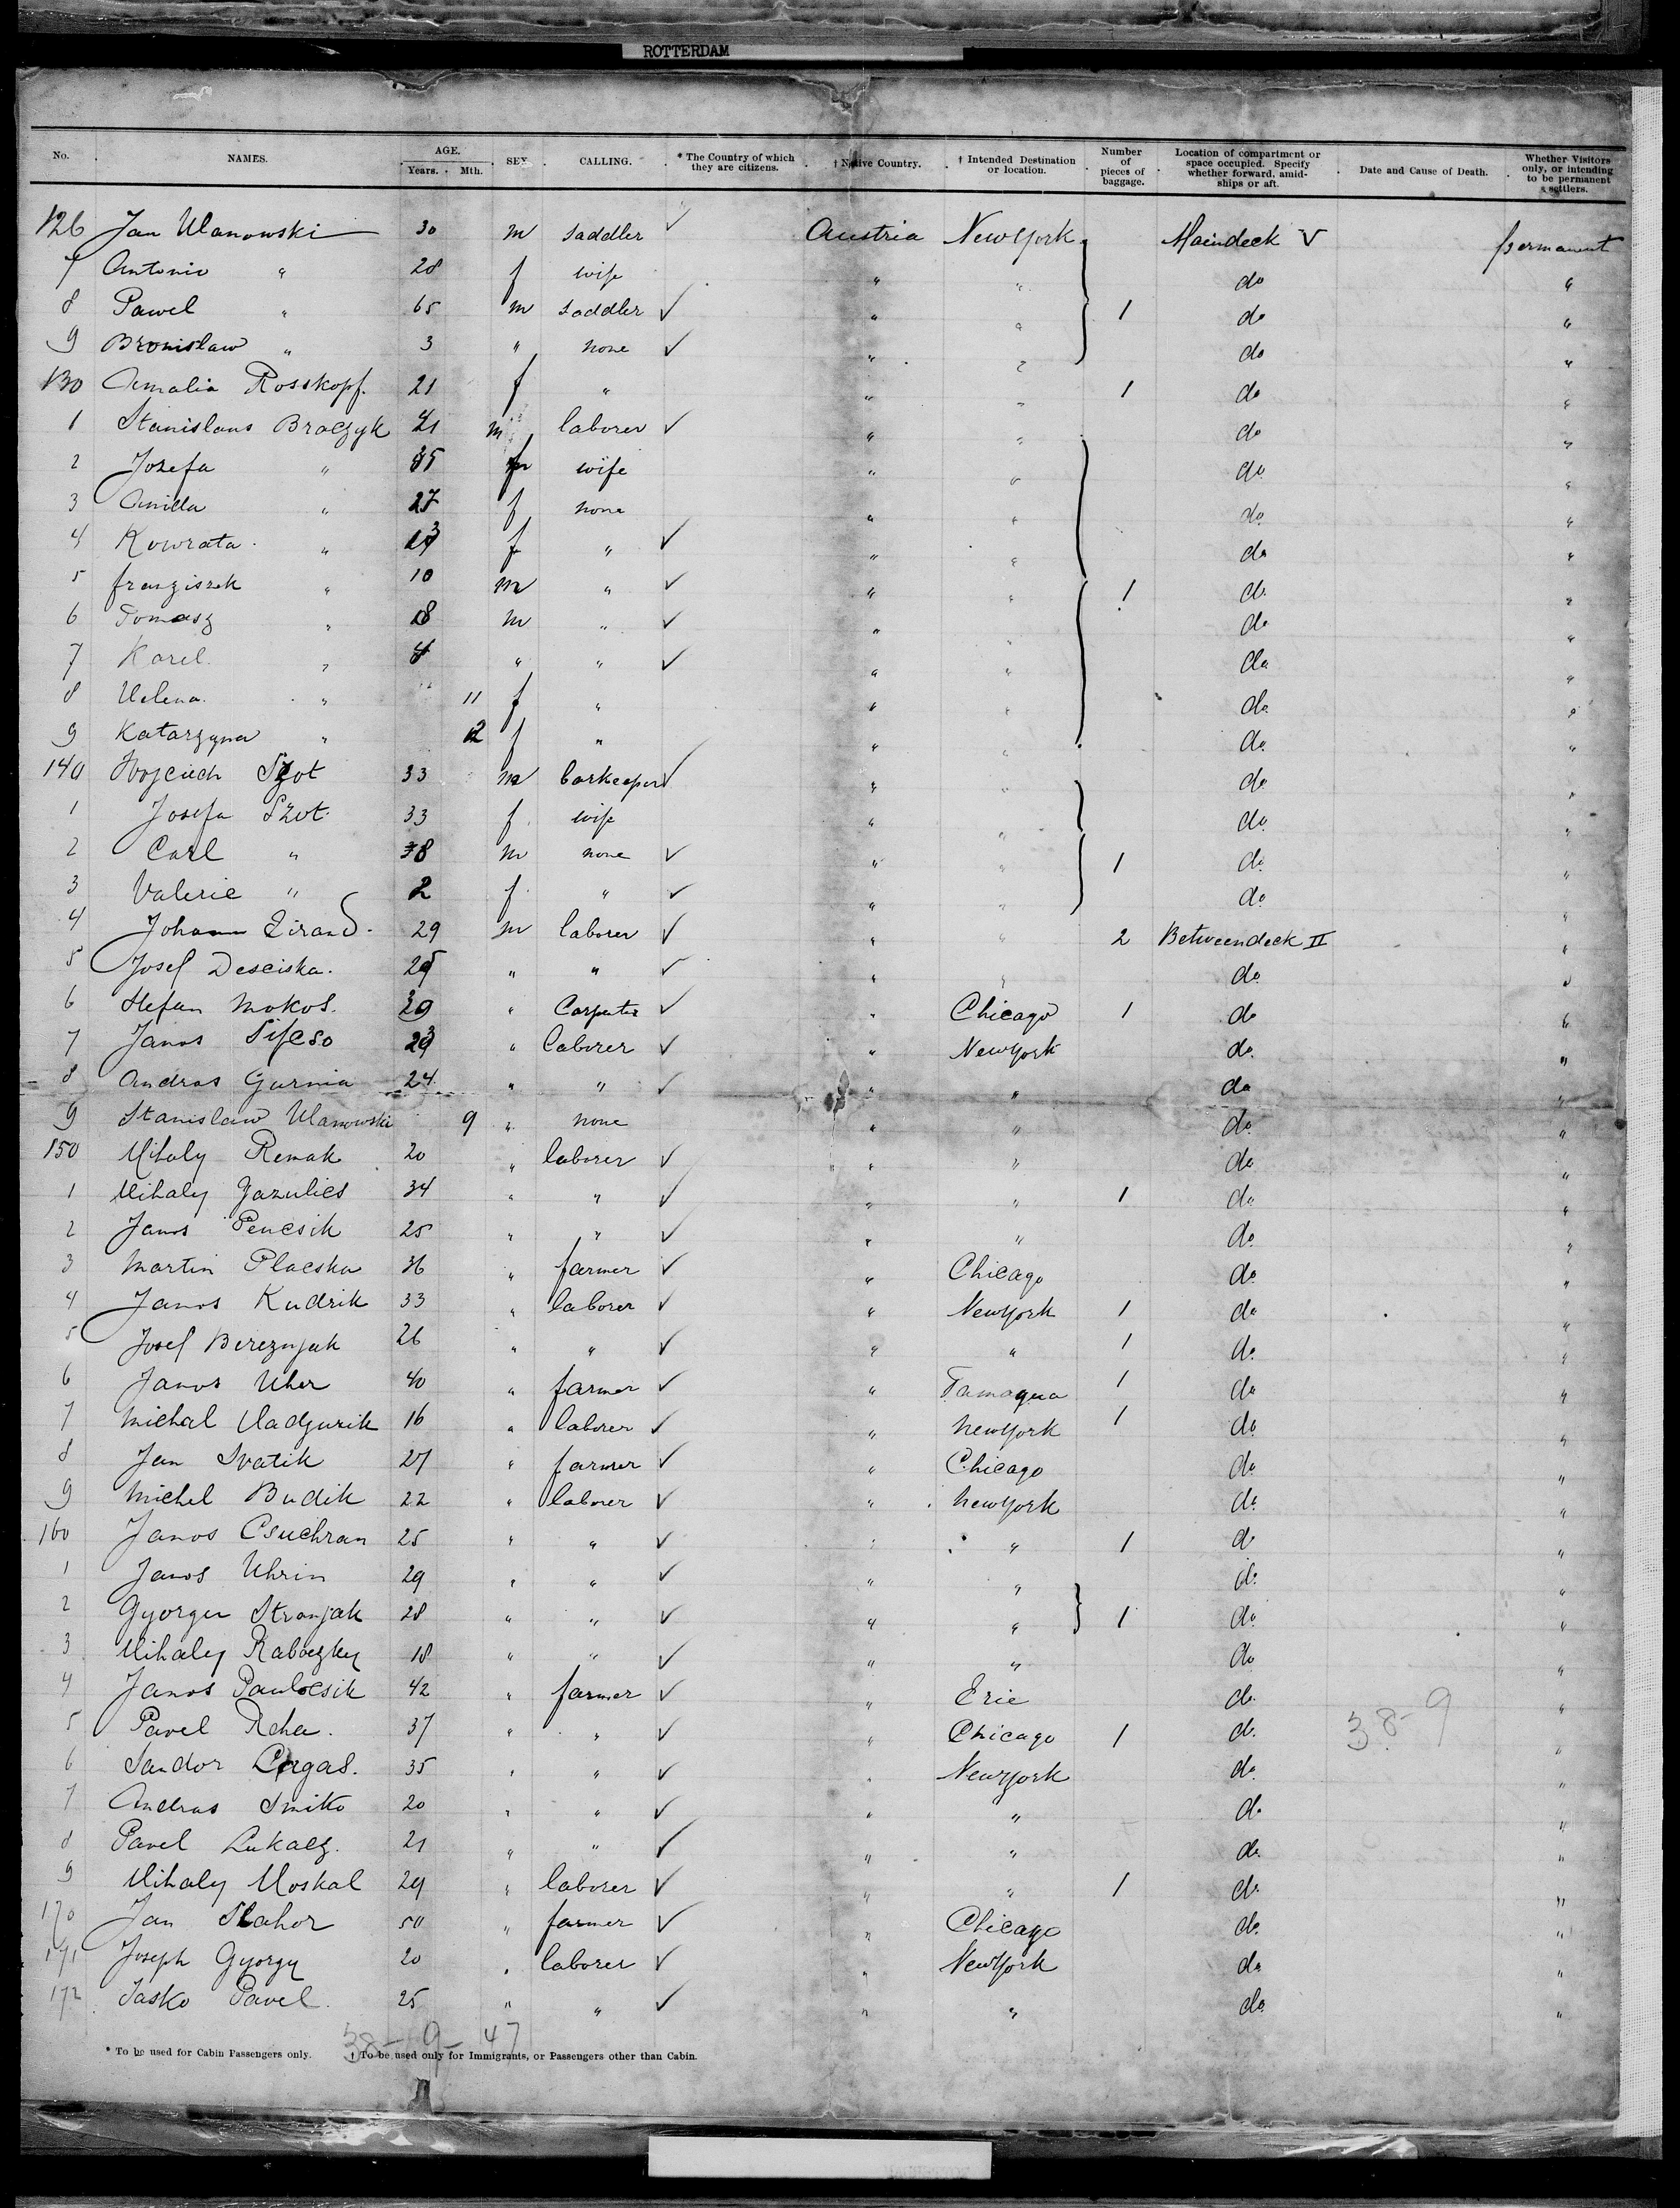 ROTTERDAM
No. NAMES. AGE. Years. Mth. SEX. CALLING. * The Country of which they are citizens. † Native Country. † Intended Destination or location. Number of pieces of baggage. Location of compartment or space occupied. Specify whether forward, amidships or aft. Date and Cause of Death. Whether Visitors only, or intending to be permanent settlers.
126 Jan Ulanowski 30 m saddler ✓ Austria New York Maindeck V permanent
7 Antonio " 28 f wife " " do "
8 Pawel " 65 m saddler ✓ " " 1 do "
9 Bronislaw " 3 " none ✓ " " do "
130 Amalia Rosskopf. 21 f " " " 1 do "
1 Stanislaus Braczyk 41 m laborer ✓ " " do "
2 Josefa " 35 f wife " " do "
3 " 27 f none " " do "
4 " 13 f " ✓ " " do "
5 franziszek " 10 m " ✓ " " 1 do "
6 Tomasz " 8 m " ✓ " " do "
7 Karel " 4 " " ✓ " " do "
8 Helena " 11 f " " " do "
9 Katarzyna " 2 f " " " do "
140 Wojciech Szot 33 m barkeeper ✓ " " do "
1 Josefa Szot 33 f wife " " do "
2 Carl " 8 m none ✓ " " 1 do "
3 Valerie " 2 f " ✓ " " do "
4 Johann Zirand 29 m laborer ✓ " " 2 Betweendeck II "
5 Josef Desciska. 25 " " ✓ " " do "
6 Stefan Mokos. 29 " Carpenter ✓ " Chicago 1 do "
7 Janos 23 " laborer ✓ " New York do "
8 Andras Gurnia 24 " " ✓ " " do "
9 Stanislaw Ulanowski 9 " none " " do "
150 Mihaly Remak 20 " laborer ✓ " " do "
1 Mihaly Gazulics 34 " " ✓ " " 1 do "
2 Janos Pencsik 25 " " ✓ " " do "
3 Martin Placska 36 " farmer ✓ " Chicago do "
4 Janos Kudrik 33 " laborer ✓ " New York 1 do "
5 Josef Bereznjak 26 " " ✓ " " 1 do "
6 Janos Uher 40 " farmer ✓ " Tamaqua 1 do "
7 Michal Vadzurik 16 " laborer ✓ " New York 1 do "
8 Jan Svatik 27 " farmer ✓ " Chicago do "
9 Michel Budik 22 " laborer ✓ " New York do "
160 Janos Csuchran 25 " " ✓ " " 1 do "
1 Janos Uhrin 29 " " ✓ " " do "
2 Gyorgu Stranjak 28 " " ✓ " " 1 do "
3 Mihaly Rabaczky 18 " " ✓ " " do "
4 Janos Paulocsik 42 " farmer ✓ " Erie do "
5 Pavel Reha. 37 " " ✓ " Chicago 1 do 38-9 "
6 Sandor 35 " " ✓ " New York do "
7 Andras Smiko 20 " " ✓ " " do "
8 Pavel Lukacz. 21 " " ✓ " " do "
9 Mihaly Moskal 29 " laborer ✓ " " 1 do "
170 Jan Slahor 50 " farmer ✓ " Chicago do "
171 Joseph Gyorgy 20 " laborer ✓ " New York do "
172 Jasko Pavel 25 " " ✓ " " do "
38-9-47
* To be used for Cabin Passengers only. † To be used only for Immigrants, or Passengers other than Cabin.